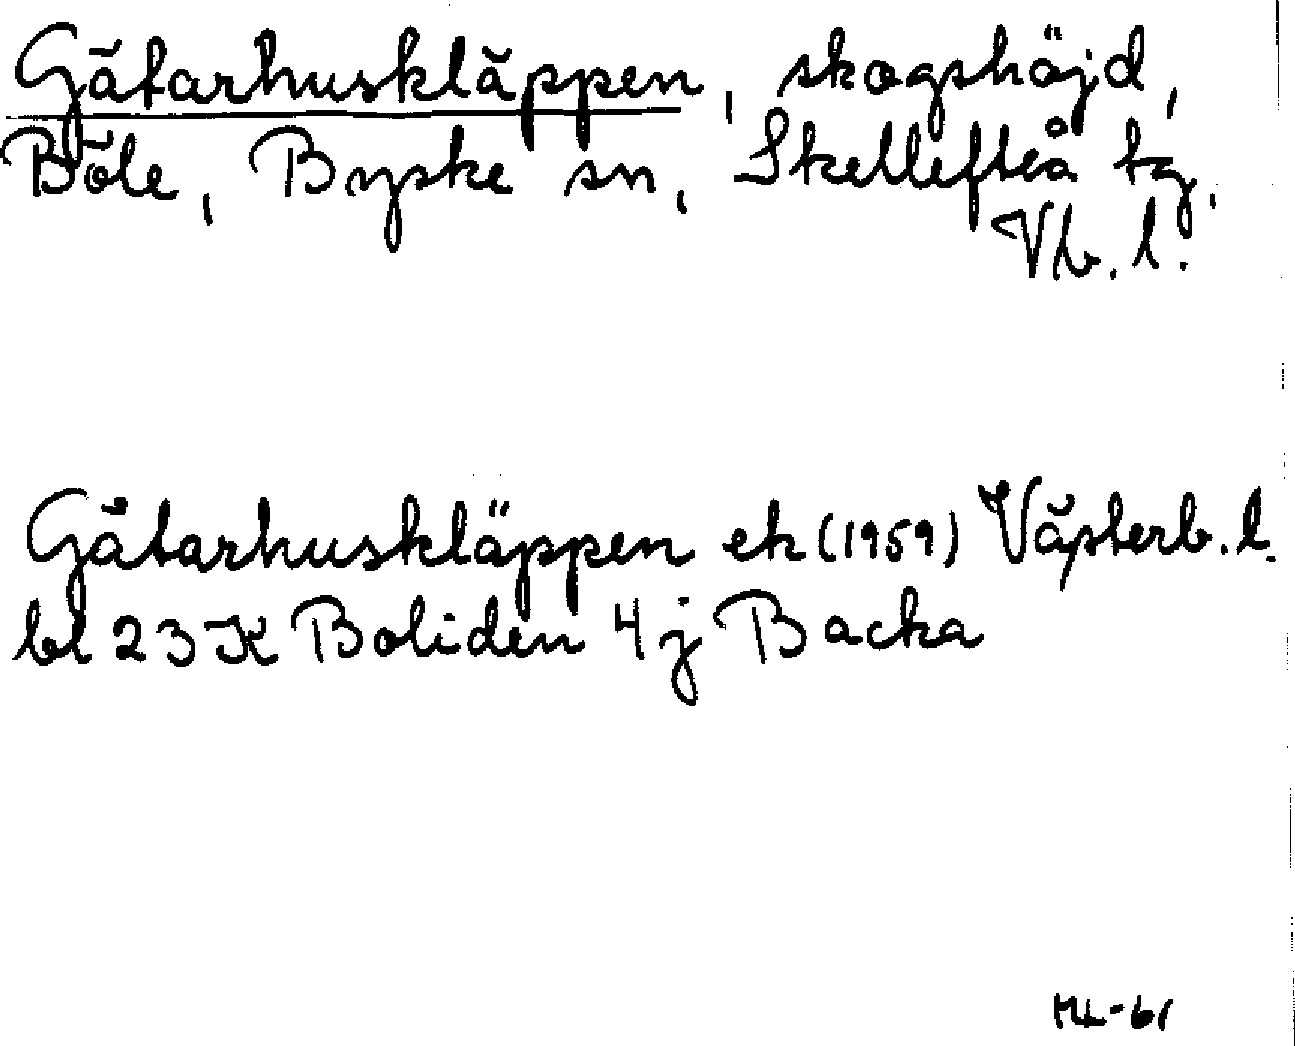 Gätarhuskläppen, skogshöjd,
Böle, Byske sn, Skellefteå tg,
Vb. l.
Gätarhuskläppen ek (1959) Västerb. l.
bl 23 K Boliden 4 j Backa
ML-61